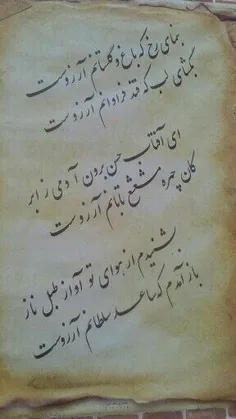 بنمای رخ که باغ و گلستانم آرزوست
بگشای لب که قند فراوانم آرزوست
ای آفتاب حسن برون آ دمی ز ابر
کان چهره مشعشع تابانم آرزوست
بشنیدم از هوای تو آواز طبل باز
باز آمدم که ساعد سلطانم آرزوست